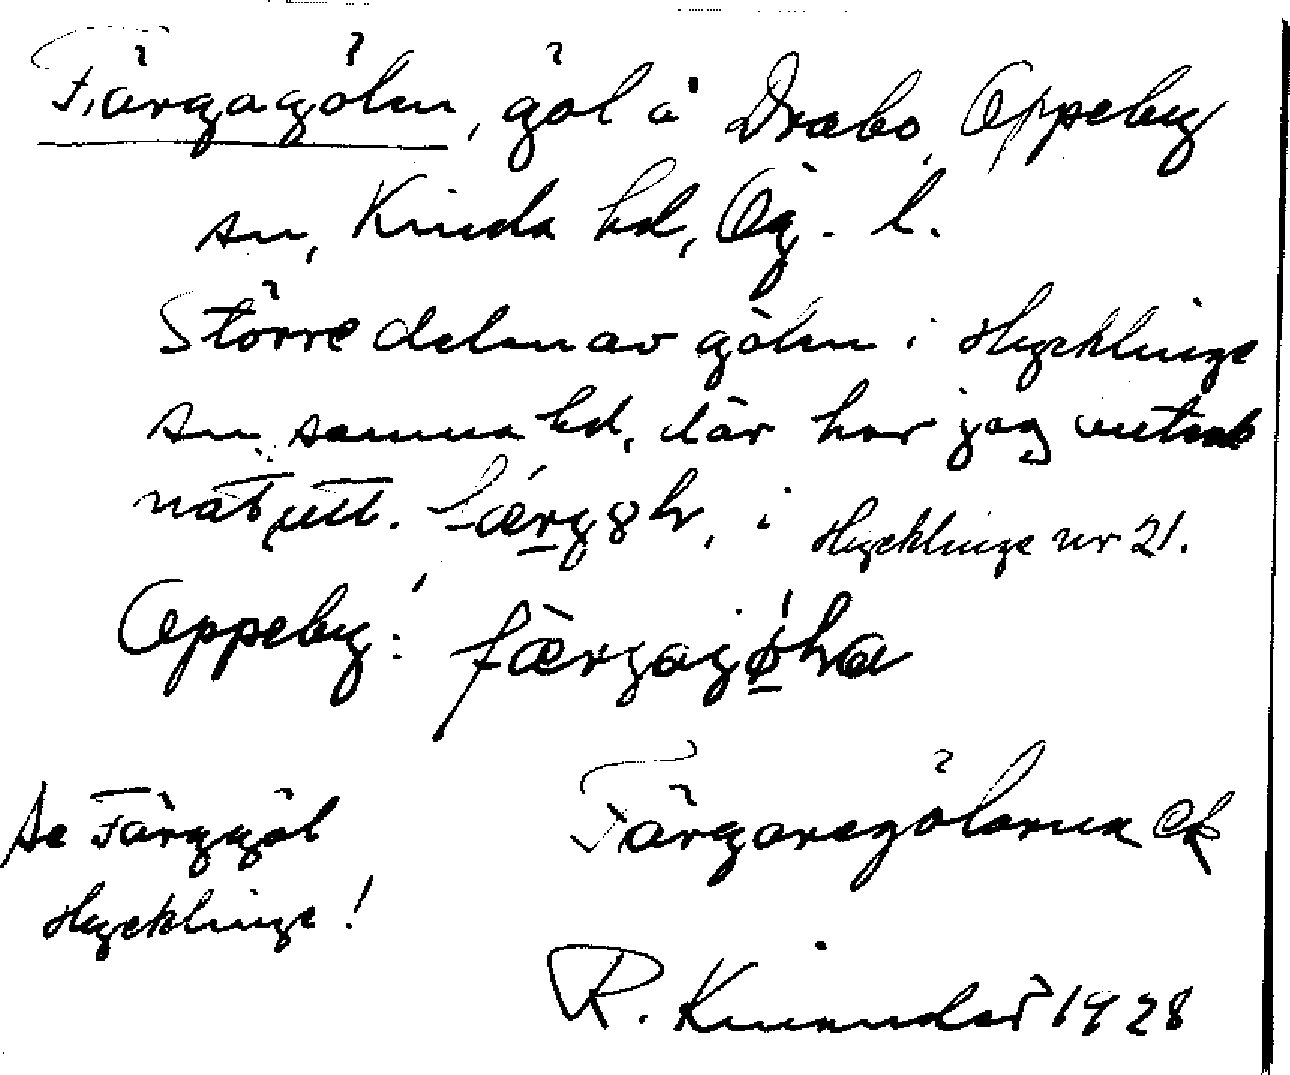 Färgagölen, göl å Drabo, Oppeby
sn, Kinda hd, Ög. l.
Större delen av gölen i Hycklinge
sn samma hd, där har jag
utt. i Hycklinge nr 21.
Oppeby: færgagøln
Se Färggöl
Hycklinge!
Färgaregölarna ek
R. Kinander 1928